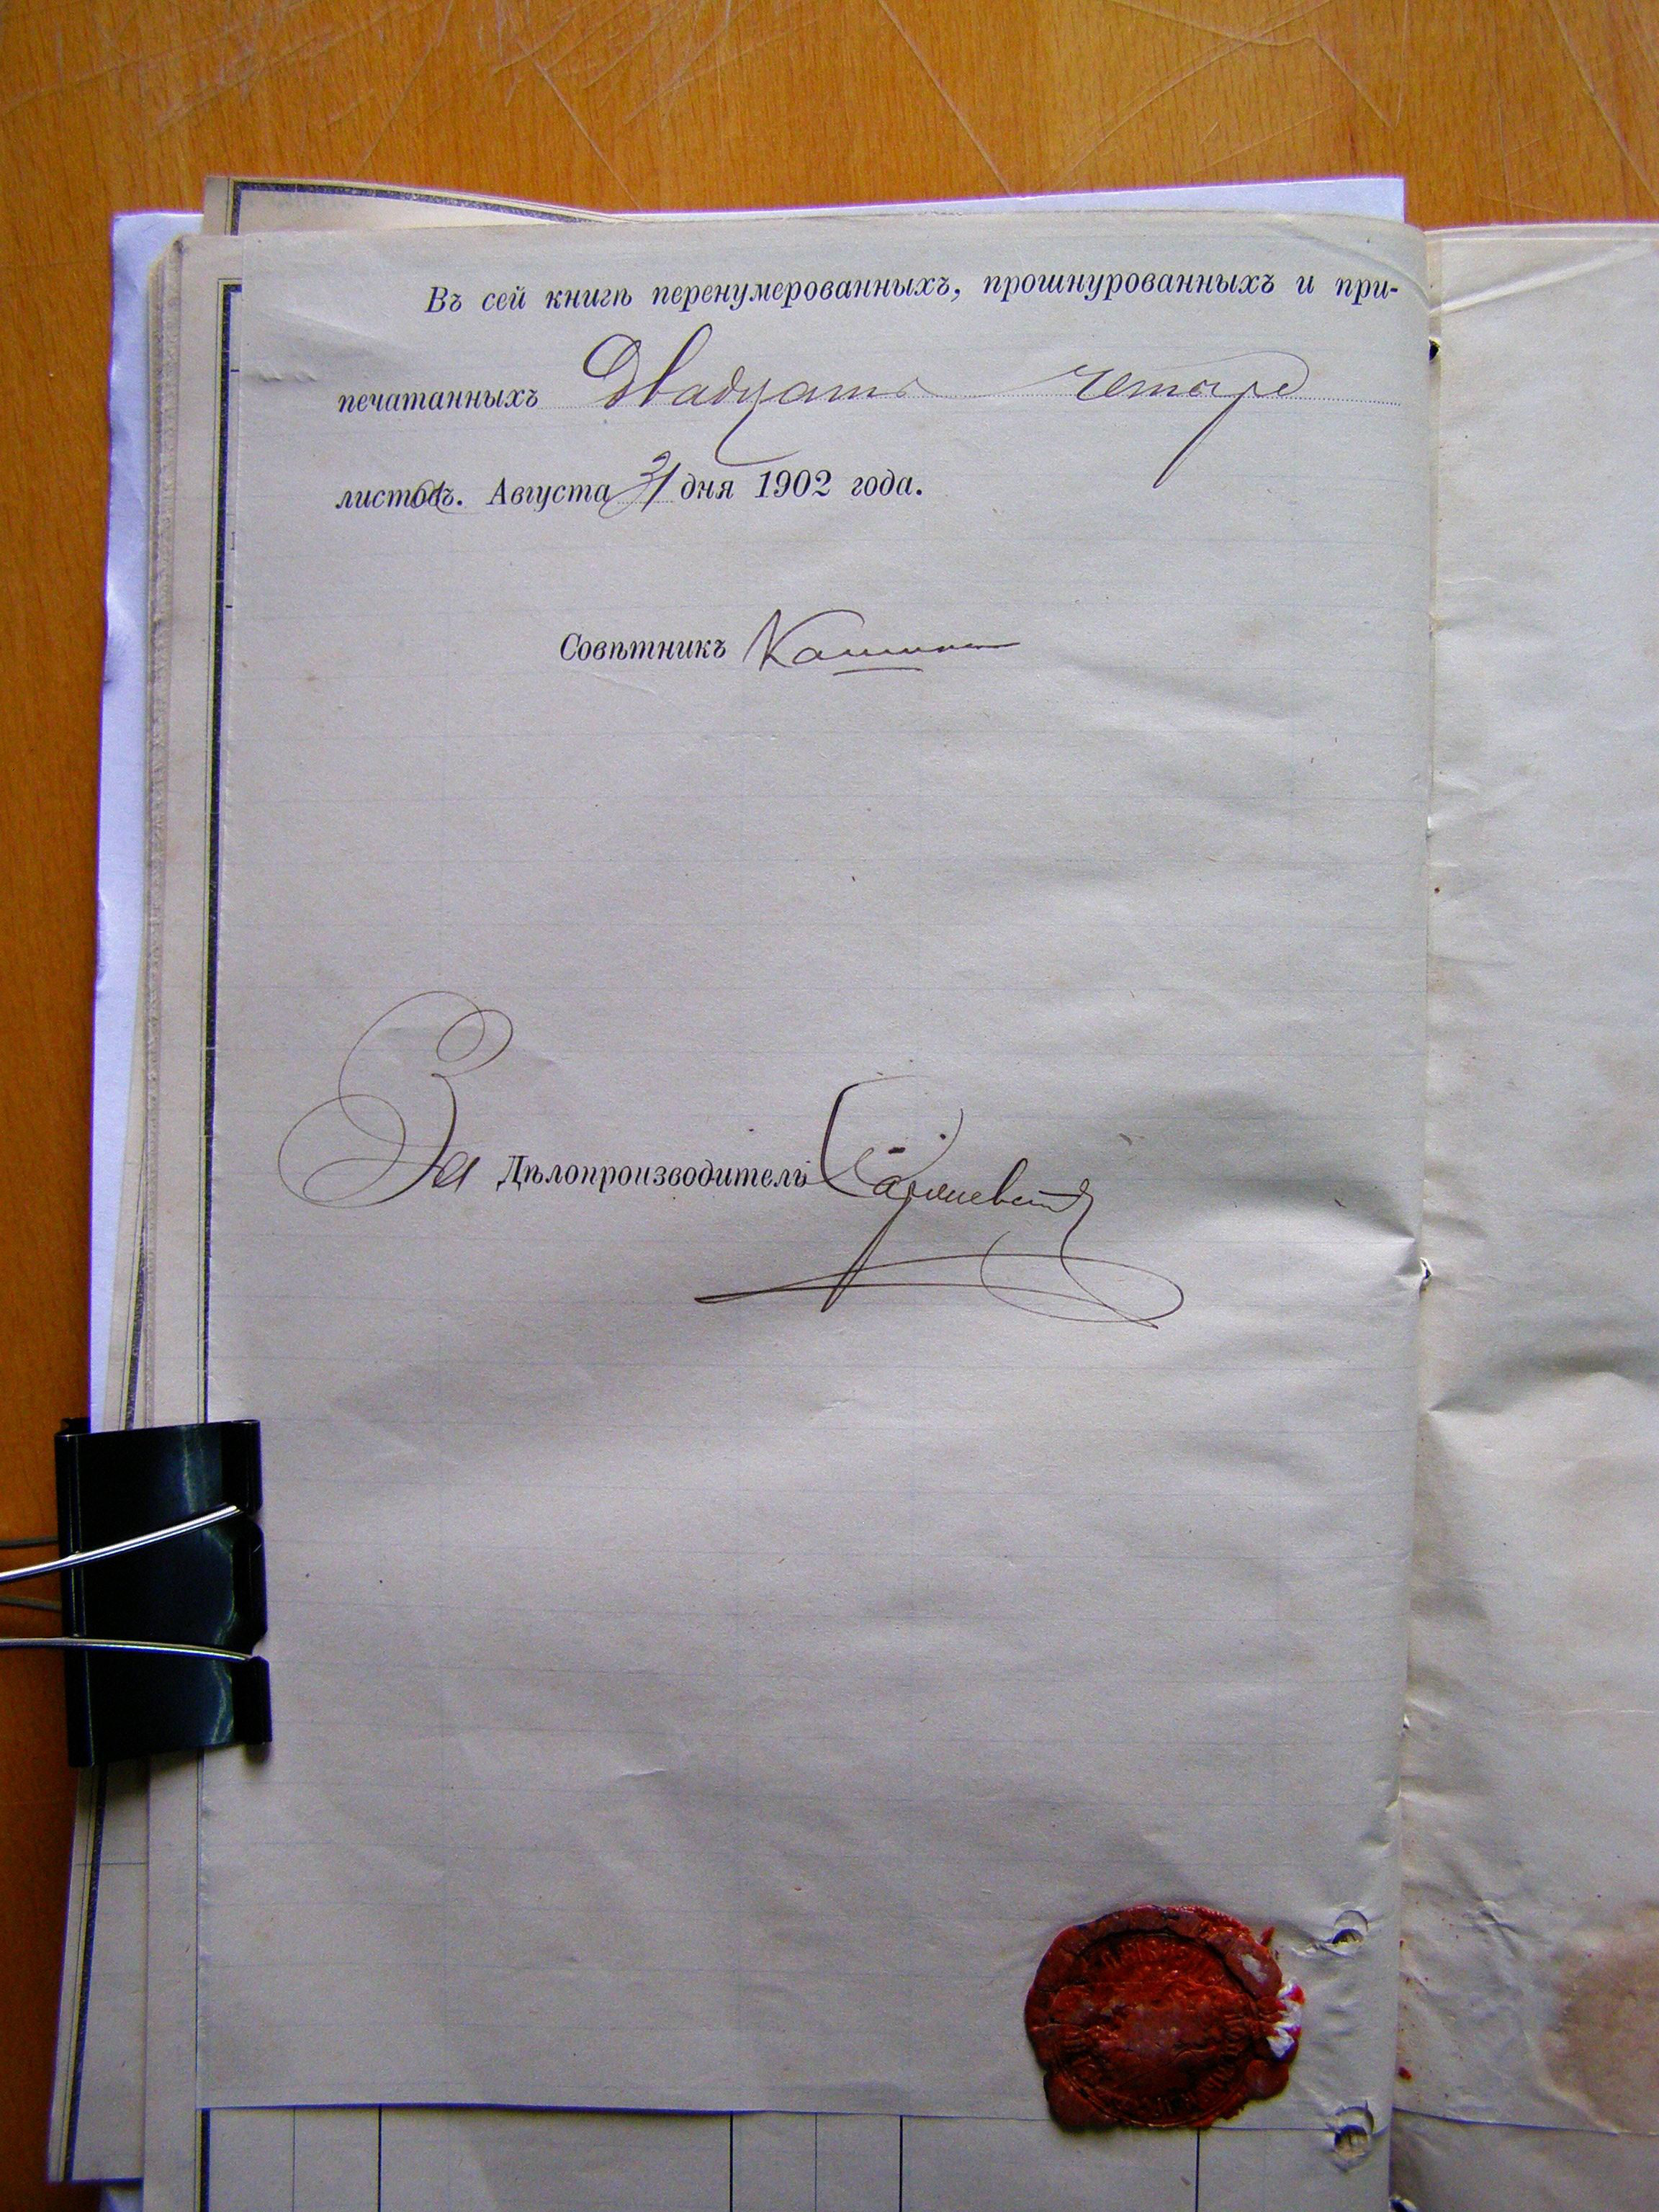 Въ сей книгѣ перенумерованныхъ, прошнурованныхъ и при-
печатанныхъ Двадцать четыре
листовъ. Августа 31 дня 1902 года.
Совѣтникъ
За Дѣлопроизводитель